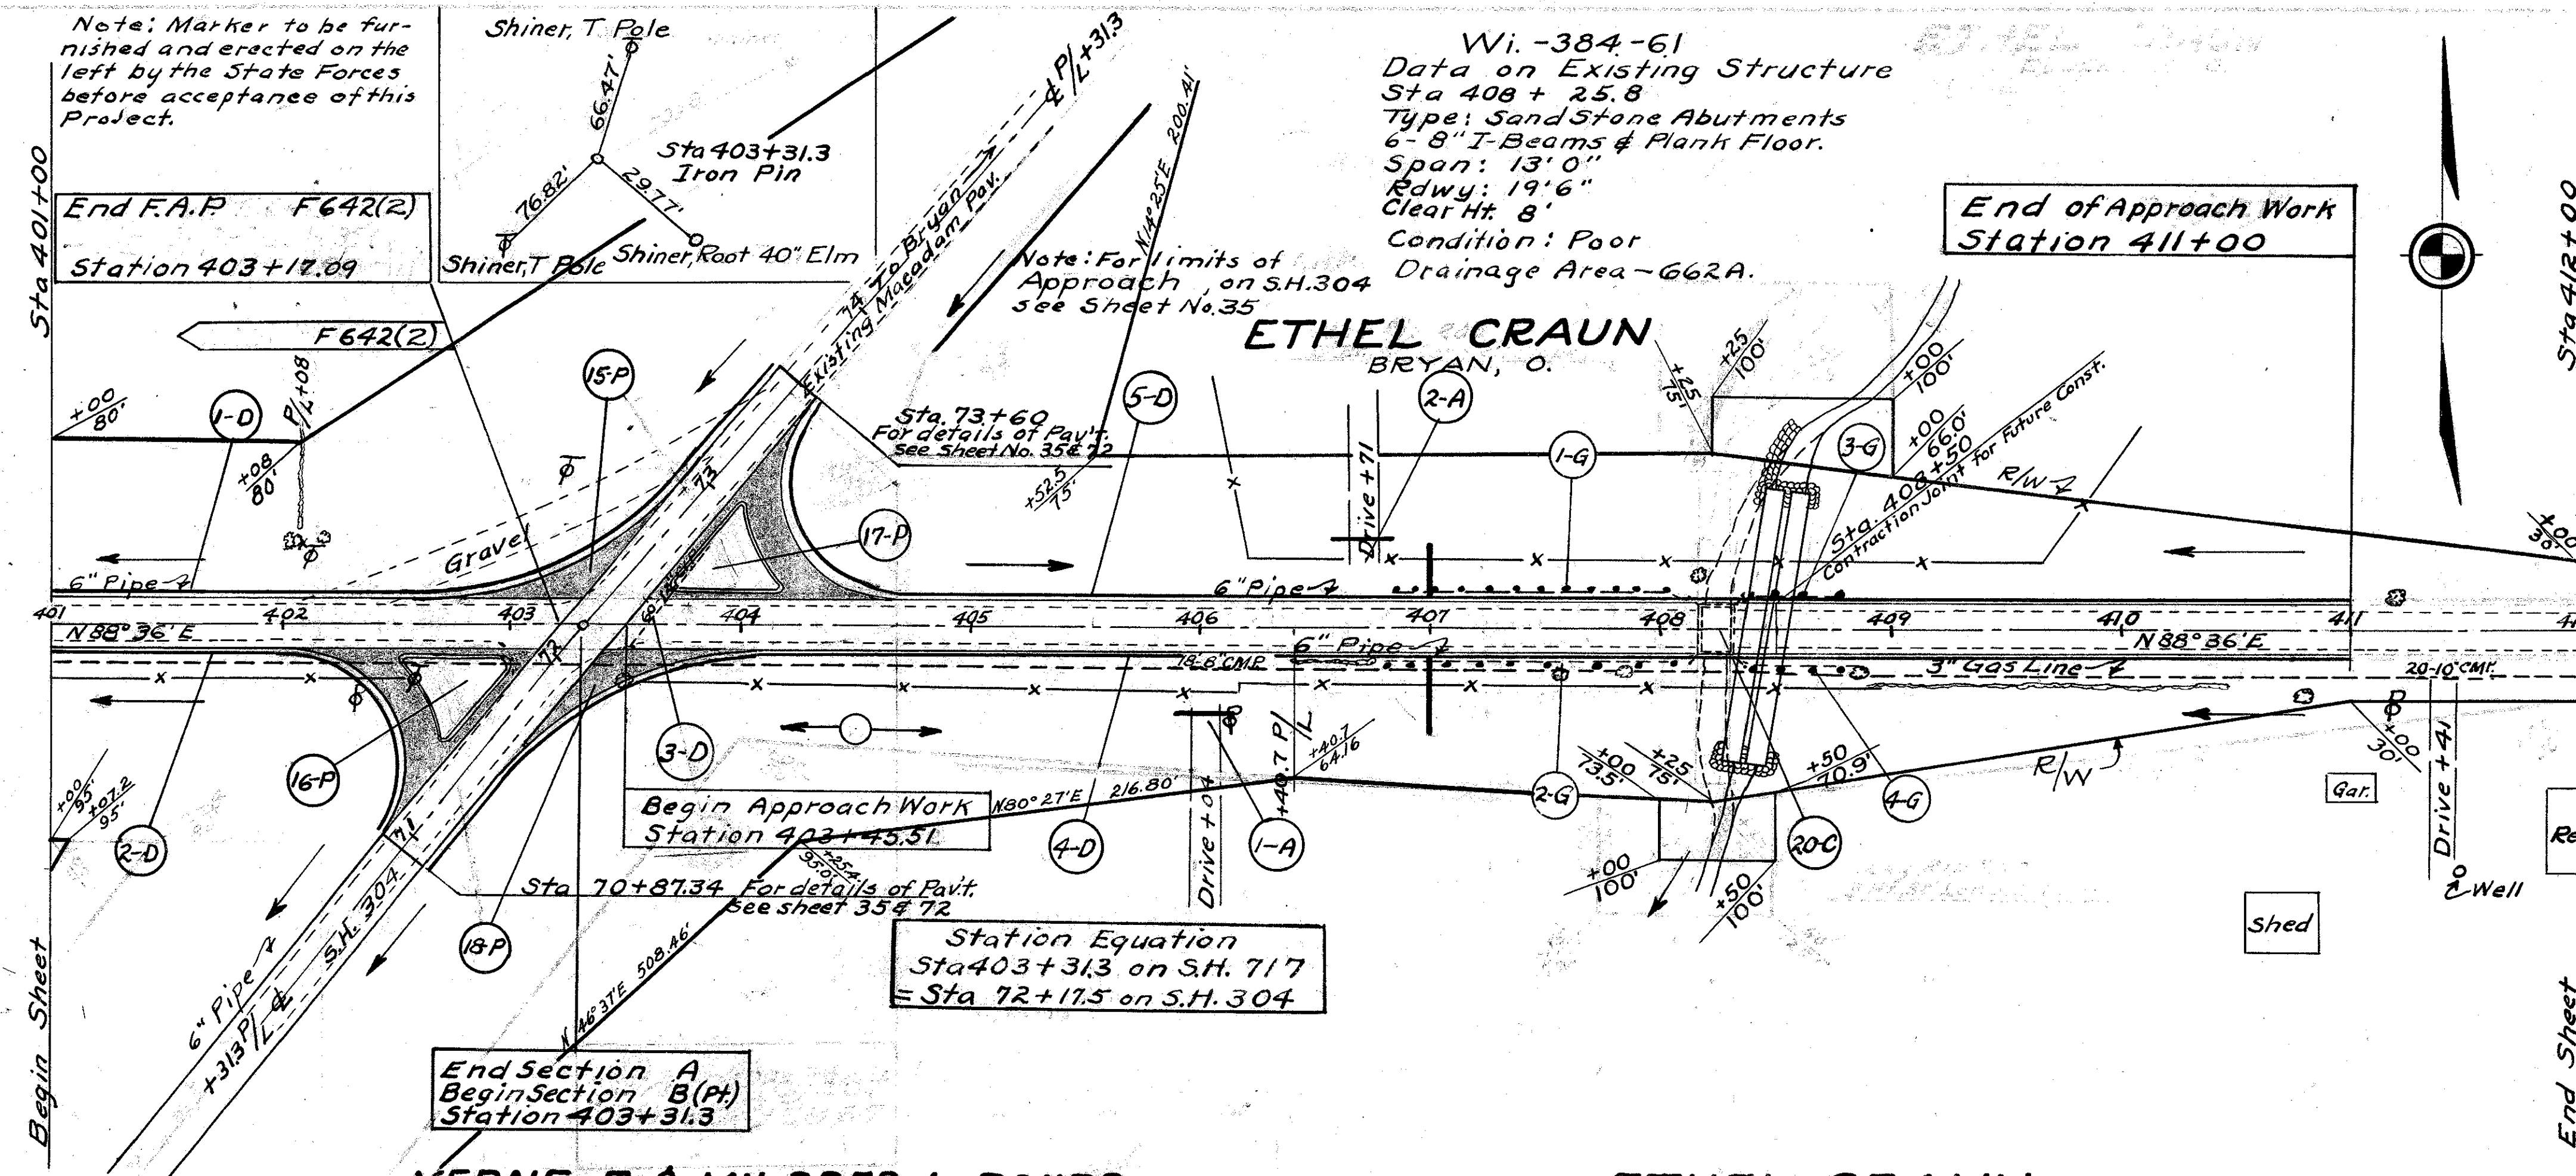 Note: Marker to be fur-
nished and erected on the
left by the State Forces
before acceptance of this
Project.
Sta 401+00
End F.A.P. F642(2)
Station 403+17.09
F642(2)
Shiner, T. Pole
66.47'
Sta 403+31.3
Iron Pin
76.82'
29.77'
Shiner, T Pole
Shiner, Root 40" Elm
₵ P/L +31.3
74 To Bryan
Existing Macadam Pav.
N14°25'E 200.41'
Note: For limits of
Approach, on S.H.304
see Sheet No.35
Wi.-384-61
Data on Existing Structure
Sta 408 + 25.8
Type: Sand Stone Abutments
6-8" I-Beams & Plank Floor.
Span: 13' 0"
Rdwy: 19'6"
Clear Ht. 8'
Condition: Poor
Drainage Area-662A.
End of Approach Work
Station 411+00
Sta 412+00
ETHEL CRAUN
BRYAN, O.
+00
80'
1-D
P/L +08
+08
80'
15-P
Sta. 73+60
For details of Pav't.
See Sheet No. 35&72
+52.5
75'
5-D
Drive +71
2-A
1-G
+25
75'
+25
100'
+00
100'
3-G
+00
66.0'
Sta. 408+50
Contraction Joint for Future Const.
R/W
+00
30'
73
Gravel
17-P
6" Pipe
6" Pipe
401
402
403
404
405
406
407
408
409
410
411
N88°36'E
72
6" Pipe
18-8"CMP
3" Gas Line
N88°36'E
20-10"CMP.
16-P
3-D
+00
95'
+07.2
95'
2-D
71
Begin Approach Work
Station 403+45.51
N80°27'E 216.80'
4-D
Drive +04
1-A
+40.7 P/L
+40.7
64.16
2-G
+00
73.5'
+25
75'
+50
70.9'
4-G
20-C
R/W
+00
30'
Gar.
Drive +41
Well
Re
Shed
+00
100'
+50
100'
+25.4
95.0'
Sta 70+87.34 For details of Pav't.
See sheet 35&72
18-P
S.H. 304
6" Pipe
+31.3 P/L ₵
N 46°37'E 508.46'
Station Equation
Sta 403+31.3 on S.H. 717
= Sta 72+17.5 on S.H. 304
End Section A
Begin Section B (Pt.)
Station 403+31.3
Begin Sheet
End Sheet